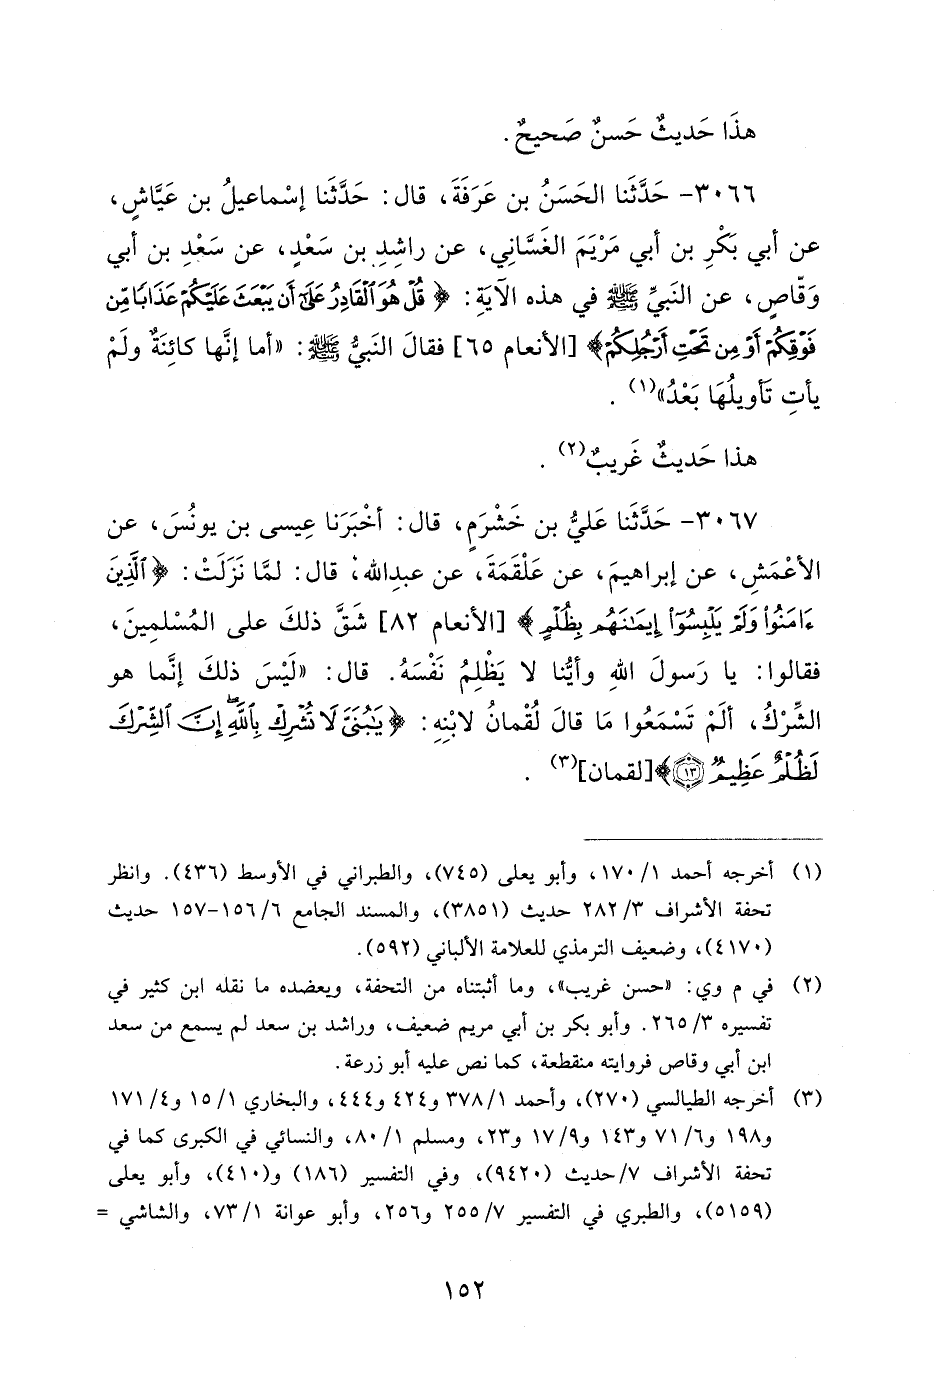 هذَا حَديثٌ حَسنٌ صَحيحٌ.
٣٠٦٦- حَدَّثَنا الحَسَنُ بن عَرَفَةَ، قال: حَدَّثَنا إسْماعيلُ بن عَيَّاشٍ،
عن أبي بَكْرِ بن أبي مَرْيَمَ الغَسَّاني، عن راشِدِ بن سَعْدٍ، عن سَعْدِ بن أبي
وَقّاصٍ، عن النَبيِّ ﷺ في هذه الآيَةِ: ﴿قُلْ هُوَ ٱلْقَادِرُ عَلَىٰٓ أَن يَبْعَثَ عَلَيْكُمْ عَذَابًا مِّن
فَوْقِكُمْ أَوْ مِن تَحْتِ أَرْجُلِكُمْ﴾ [الأنعام ٦٥] فقالَ النَبيُّ ﷺ: «أما إنَّها كائِنَةٌ ولَمْ
يأتِ تَأويلُهَا بَعْدُ»(١).
هذا حَديثٌ غَريبٌ(٢).
٣٠٦٧- حَدَّثَنا عَليُّ بن خَشْرَمٍ، قال: أخْبَرَنا عِيسى بن يونُسَ، عن
الأعْمَشِ، عن إبراهيمَ، عن عَلْقَمَةَ، عن عبدِالله، قال: لمَّا نَزَلَتْ: ﴿ٱلَّذِينَ
ءَامَنُوا۟ وَلَمْ يَلْبِسُوٓا۟ إِيمَـٰنَهُم بِظُلْمٍ﴾ [الأنعام ٨٢] شَقَّ ذلكَ على المُسْلمِينَ،
فقالوا: يا رَسولَ اللهِ وأيُّنا لا يَظْلِمُ نَفْسَهُ. قال: «لَيْسَ ذلكَ إنَّما هو
الشِّرْكُ، ألَمْ تَسْمَعُوا مَا قالَ لُقْمانُ لابْنِهِ: ﴿يَـٰبُنَىَّ لَا تُشْرِكْ بِٱللَّهِ ۖ إِنَّ ٱلشِّرْكَ
لَظُلْمٌ عَظِيمٌ ١٣﴾[لقمان](٣).
(١) أخرجه أحمد ١/ ١٧٠، وأبو يعلى (٧٤٥)، والطبراني في الأوسط (٤٣٦). وانظر
تحفة الأشراف ٣/ ٢٨٢ حديث (٣٨٥١)، والمسند الجامع ٦/ ١٥٦-١٥٧ حديث
(٤١٧٠)، وضعيف الترمذي للعلامة الألباني (٥٩٢).
(٢) في م وي: «حسن غريب»، وما أثبتناه من التحفة، ويعضده ما نقله ابن كثير في
تفسيره ٣/ ٢٦٥. وأبو بكر بن أبي مريم ضعيف، وراشد بن سعد لم يسمع من سعد
ابن أبي وقاص فروايته منقطعة، كما نص عليه أبو زرعة.
(٣) أخرجه الطيالسي (٢٧٠)، وأحمد ١/ ٣٧٨ و٤٢٤ و٤٤٤، والبخاري ١/ ١٥ و٤/ ١٧١
و١٩٨ و٦/ ٧١ و١٤٣ و٩/ ١٧ و٢٣، ومسلم ١/ ٨٠، والنسائي في الكبرى كما في
تحفة الأشراف ٧/حديث (٩٤٢٠)، وفي التفسير (١٨٦) و(٤١٠)، وأبو يعلى
(٥١٥٩)، والطبري في التفسير ٧/ ٢٥٥ و٢٥٦، وأبو عوانة ١/ ٧٣، والشاشي =
١٥٢